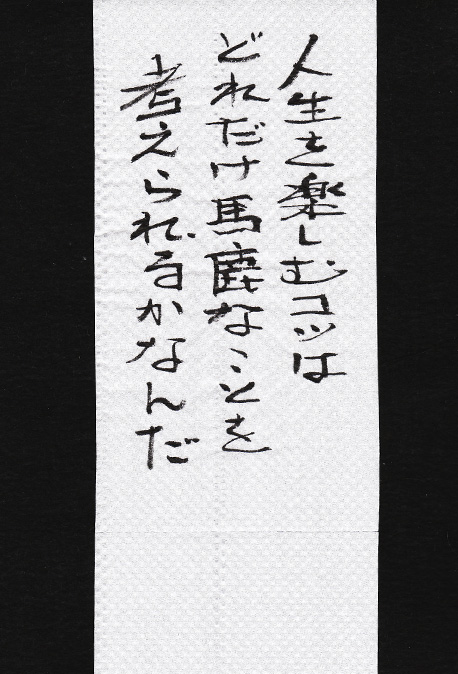 人生を楽しむコツは
どれだけ馬鹿なことを
考えられるかなんだ